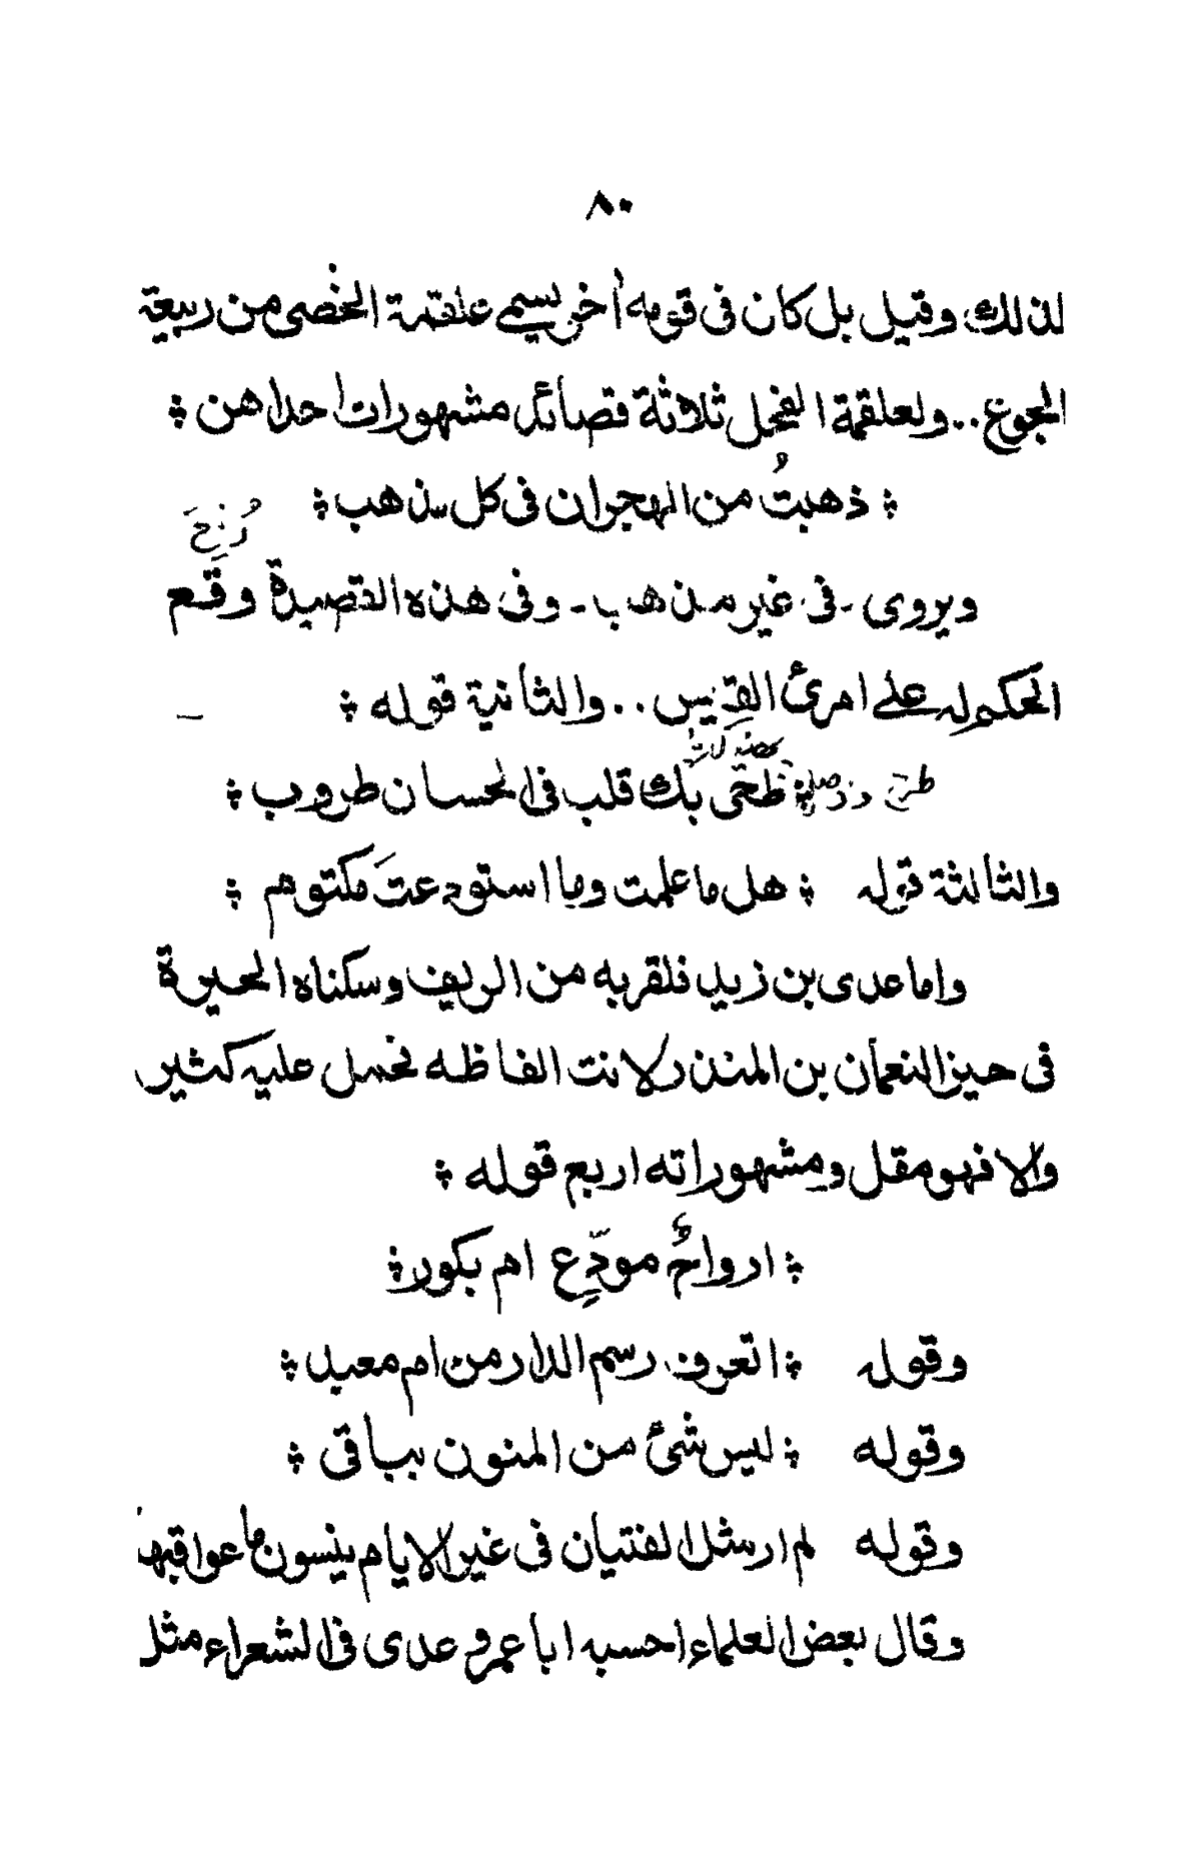 ٨٠
لذلك وقيل بل كان فى قومه أخر يسمى علقمة الخصى من ربيعة
الجوع .. ولعلقمة الفحل ثلاثة قصائد مشهورات احداهن ؛
؛ ذهبتُ من الهجران فى كل مذهب ؛
ويروى - فى غير مذهب - وفى هذه القصيدة وقع
الحكم له على امرئ القيس .. والثانية قوله ؛
؛ طحى بك قلب فى الحسان طروب ؛
والثالثة قوله ؛ هل ما علمت وما استودعتَ مكتوم ؛
واما عدى بن زيد فلقربه من الريف وسكناه الحيرة
فى حيز النعمان بن المنذر لانت الفاظه فحمل عليه كثير
والا فهو مقل ومشهوراته اربع قوله ؛
؛ ارواحٌ مودّعٍ ام بكور ؛
وقوله ؛ اتعرف رسم الدار من ام معبد ؛
وقوله ؛ ليس شئ من المنون بباقى ؛
وقوله لم ار مثل الفتيان فى غير الايام ينسون ما عواقبها
وقال بعض العلماء احسبه ابا عمرو عدى فى الشعراء مثل